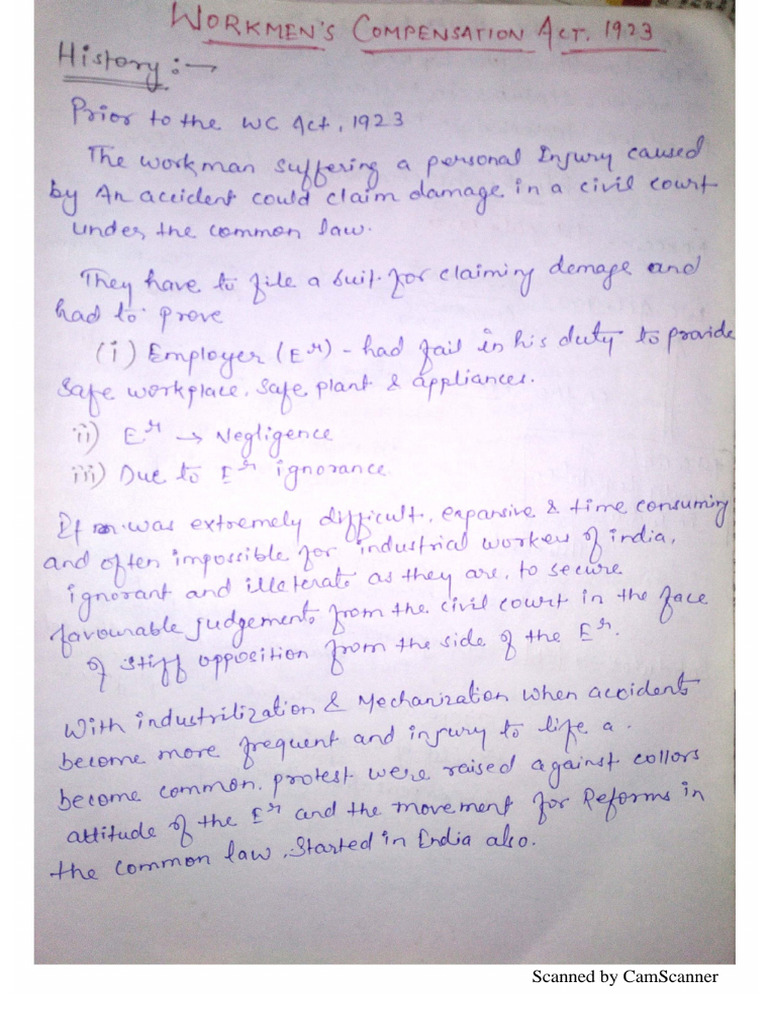 WORKMEN'S COMPENSATION ACT. 1923
History :→
Prior to the WC Act, 1923
The workman suffering a personal Injury caused
by An accident could claim damage in a civil court
under the common law.
They have to file a suit for claiming demage and
had to prove
(i) Employer (Er) - had fail in his duty to provide
safe workplace, safe plant & appliances.
ii) Er → Negligence
iii) Due to Er ignorance
It was extremely difficult, expansive & time consuming
and often impossible for industrial workers of india,
ignorant and illeterate as they are, to secure
favourable judgements from the civil court in the face
of stiff opposition from the side of the Er.
With industrilization & Mechanization when accidents
become more frequent and injury to life a
become common. protest were raised against collors
attitude of the Er and the movement for Reforms in
the common law, Started in India also.
Scanned by CamScanner